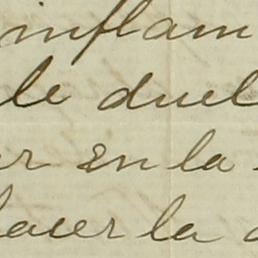 inflam
le duel
er en la
hacer la